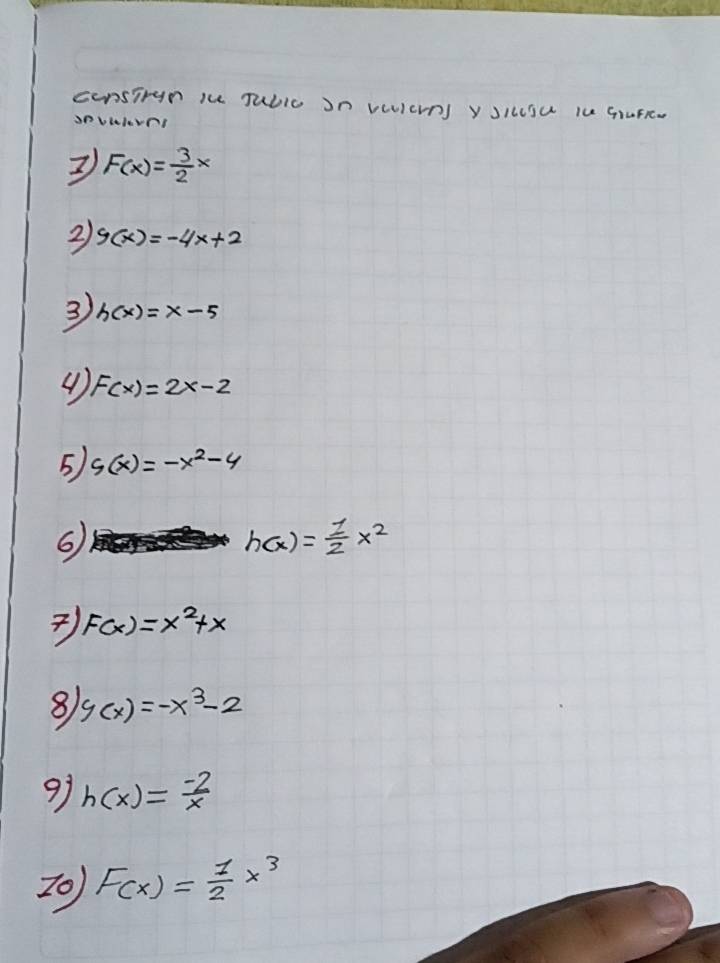 construya la tabla de valores y dibuja la grafica
de valores
1) F(x) = 3/2 x
2) g(x) = -4x+2
3) h(x) = x-5
4) F(x) = 2x-2
5) g(x) = -x²-4
6) h(x) = 1/2 x²
7) F(x) = x²+x
8) g(x) = -x³-2
9) h(x) = -2/x
10) F(x) = 1/2 x³